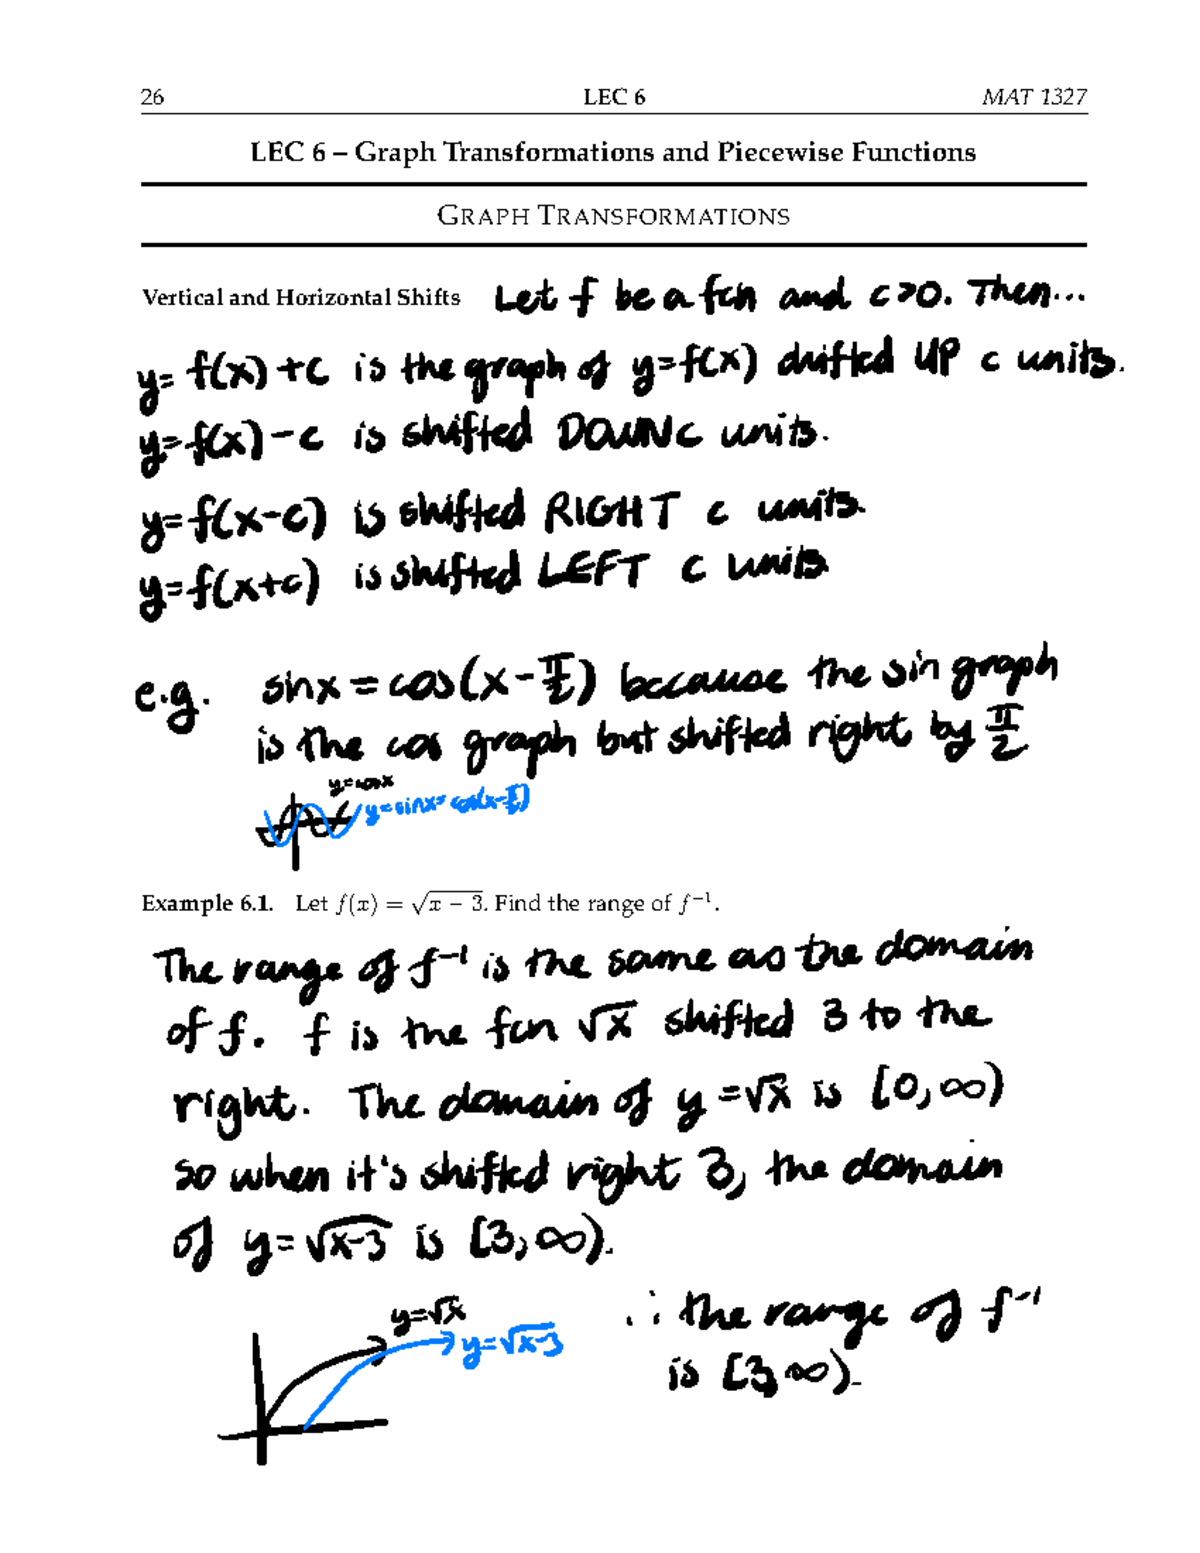 26 LEC 6 MAT 1327
LEC 6 – Graph Transformations and Piecewise Functions
GRAPH TRANSFORMATIONS
Vertical and Horizontal Shifts Let f be a fcn and c>0. Then...
y= f(x)+c is the graph of y=f(x) shifted UP c units.
y=f(x)-c is shifted DOWN c units.
y=f(x-c) is shifted RIGHT c units.
y=f(x+c) is shifted LEFT c units
e.g. sinx = cos(x-π/2) because the sin graph
is the cos graph but shifted right by π/2
y=cosx
y=sinx=cos(x-π/2)
Example 6.1. Let f(x) = √x − 3. Find the range of f⁻¹.
The range of f⁻¹ is the same as the domain
of f. f is the fcn √x shifted 3 to the
right. The domain of y=√x is [0,∞)
so when it's shifted right 3, the domain
of y=√x-3 is [3,∞).
y=√x
y=√x-3
∴ the range of f⁻¹
is [3,∞).